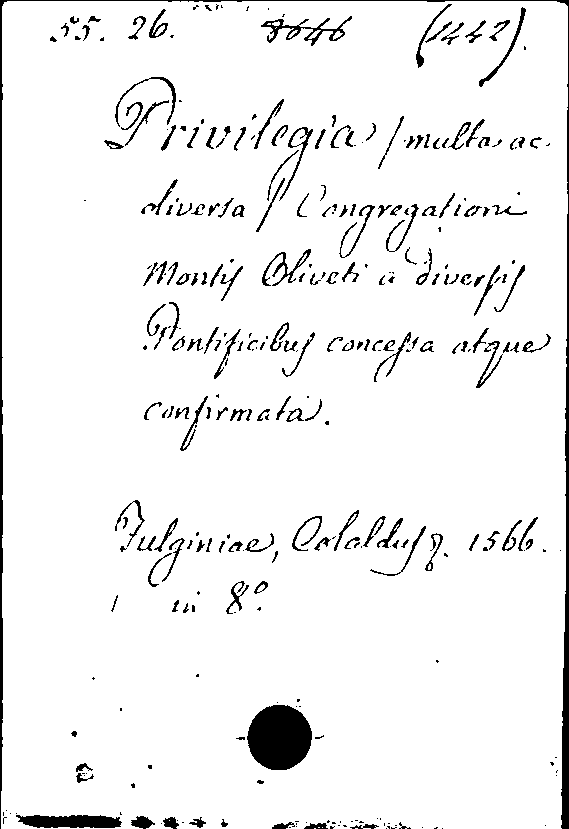 55. 26. 8646 (1442).
Privilegia / multa ac
diversa / Congregationi
Montis Oliveti a diversis
Pontificibus concessa atque
confirmata.
Fulginiae, 1566.
in 8º.